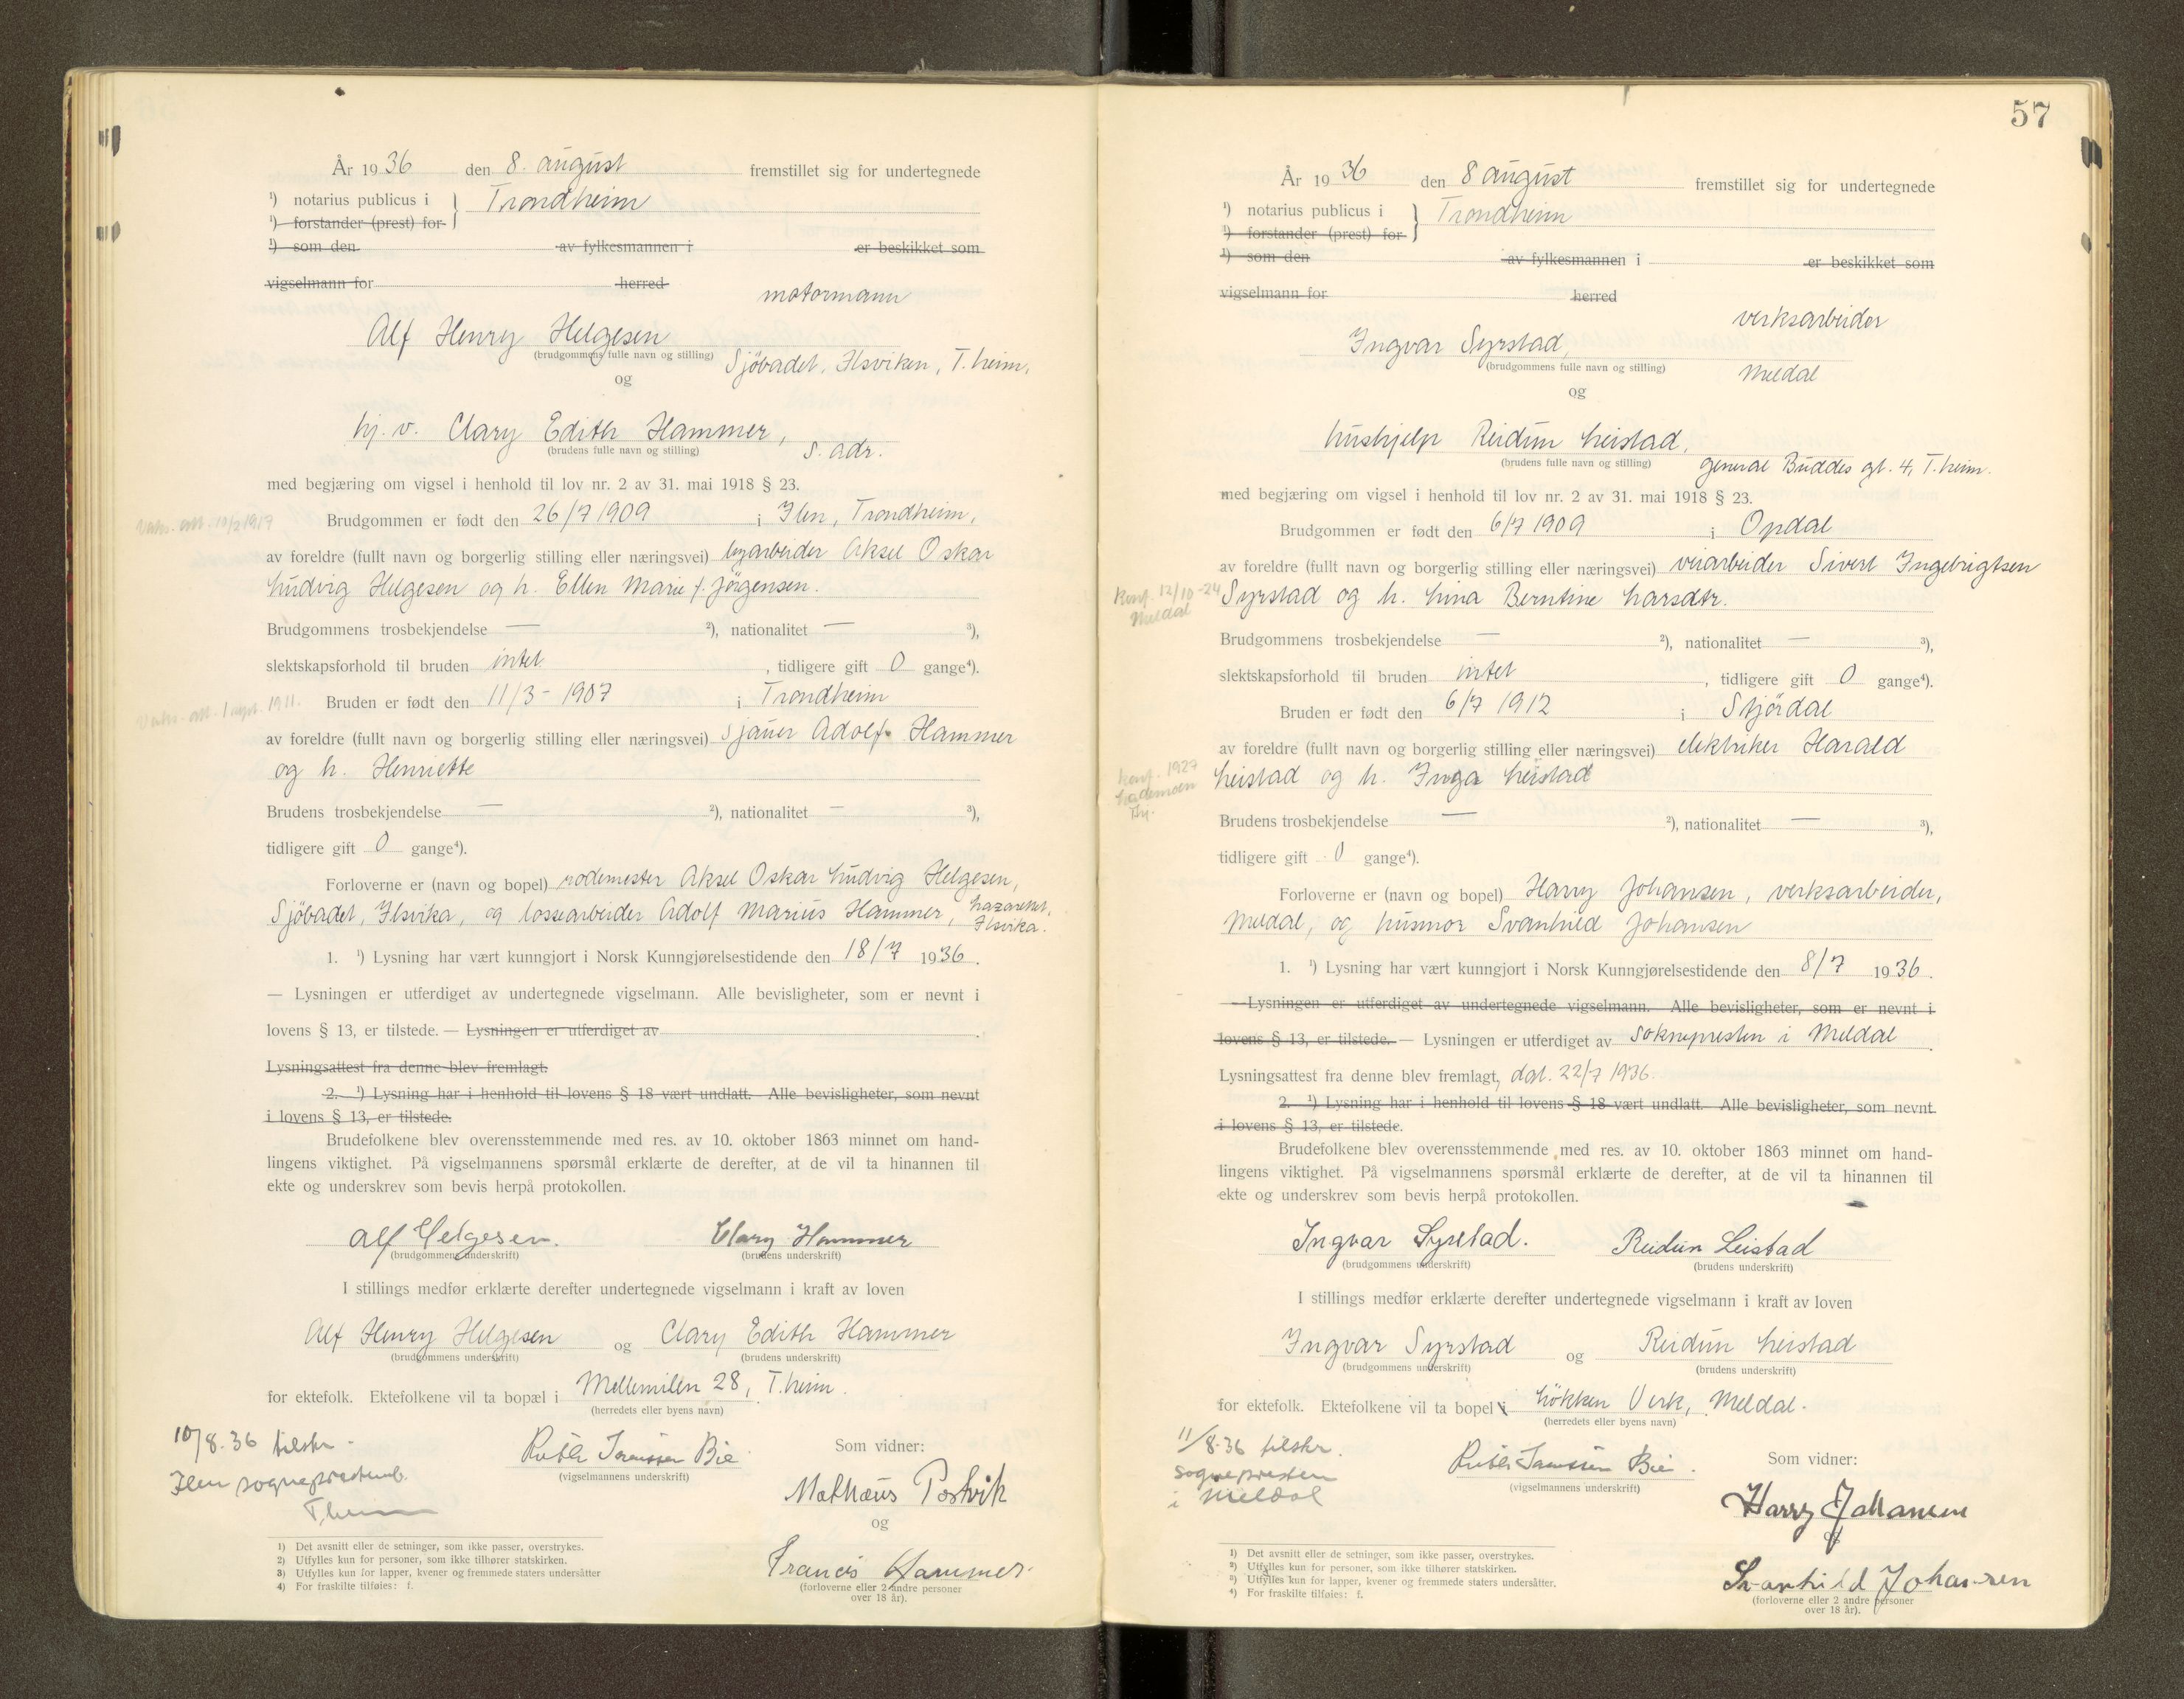 År 1936 den 8. august fremstillet sig for undertegnede
¹) notarius publicus i } Trondheim
¹) forstander (prest) for
¹) som den av fylkesmannen i er beskikket som
vigselmann for herred
motormann
Alf Henry Helgesen
(brudgommens fulle navn og stilling) Sjöbadet, Ilsviken, T.heim,
og
hj. v. Clary Edith Hammer,
(brudens fulle navn og stilling) s. adr.
med begjæring om vigsel i henhold til lov nr. 2 av 31. mai 1918 § 23.
Vaks. att. 10/2 1917
Brudgommen er født den 26/7 1909 i Ilen, Trondheim,
av foreldre (fullt navn og borgerlig stilling eller næringsvei) byarbeider Aksel Oskar
Ludvig Helgesen og h. Ellen Marie f. Jörgensen.
Brudgommens trosbekjendelse — ²), nationalitet — ³),
slektskapsforhold til bruden intet , tidligere gift 0 gange⁴).
Vaks. att. 1 sept. 1911.
Bruden er født den 11/3 - 1907 i Trondheim
av foreldre (fullt navn og borgerlig stilling eller næringsvei) sjauer Adolf Hammer
og h. Henriette
Brudens trosbekjendelse — ²), nationalitet — ³),
tidligere gift 0 gange⁴).
Forloverne er (navn og bopel) rodemester Aksel Oskar Ludvig Helgesen,
Sjöbadet, Ilsvika, og lossearbeider Adolf Marius Hammer, Lazarettet,
Ilsvika.
1. ¹) Lysning har vært kunngjort i Norsk Kunngjørelsestidende den 18/7 1936.
— Lysningen er utferdiget av undertegnede vigselmann. Alle bevisligheter, som er nevnt i
lovens § 13, er tilstede. — Lysningen er utferdiget av .
Lysningsattest fra denne blev fremlagt.
2. ¹) Lysning har i henhold til lovens § 18 vært undlatt. Alle bevisligheter, som nevnt
i lovens § 13, er tilstede.
Brudefolkene blev overensstemmende med res. av 10. oktober 1863 minnet om hand-
lingens viktighet. På vigselmannens spørsmål erklærte de derefter, at de vil ta hinannen til
ekte og underskrev som bevis herpå protokollen.
Alf Helgesen. Clary Hammer
(brudgommens underskrift) (brudens underskrift)
I stillings medfør erklærte derefter undertegnede vigselmann i kraft av loven
Alf Henry Helgesen og Clary Edith Hammer
(brudgommens underskrift) (brudens underskrift)
for ektefolk. Ektefolkene vil ta bopæl i Mellemilen 28, T.heim.
(herredets eller byens navn)
10/8.36 tilskr.
Ilen sogneprestemb.
T.heim
Ruth Sorenssen Bie Som vidner:
(vigselmannens underskrift)
Mathæus Postvik
og
Francis Hammer.
(forloverne eller 2 andre personer
over 18 år).
1) Det avsnitt eller de setninger, som ikke passer, overstrykes.
2) Utfylles kun for personer, som ikke tilhører statskirken.
3) Utfylles kun for lapper, kvener og fremmede staters undersåtter
4) For fraskilte tilføies: f.
57
År 1936 den 8 august fremstillet sig for undertegnede
¹) notarius publicus i } Trondheim
¹) forstander (prest) for
¹) som den av fylkesmannen i er beskikket som
vigselmann for herred
verksarbeider
Ingvar Syrstad,
(brudgommens fulle navn og stilling) Meldal
og
hushjelp Reidun Leistad,
(brudens fulle navn og stilling) General Buddes gt. 4, T.heim.
med begjæring om vigsel i henhold til lov nr. 2 av 31. mai 1918 § 23.
Brudgommen er født den 6/7 1909 i Opdal
av foreldre (fullt navn og borgerlig stilling eller næringsvei) veiarbeider Sivert Ingebrigtsen
Konf. 12/10-24
Meldal
Syrstad og h. Lina Berntine Larsdtr.
Brudgommens trosbekjendelse — ²), nationalitet — ³),
slektskapsforhold til bruden intet , tidligere gift 0 gange⁴).
Bruden er født den 6/7 1912 i Stjördal
av foreldre (fullt navn og borgerlig stilling eller næringsvei) elektriker Harald
Konf. 1927
Lademoen
Leistad og h. Inga Leistad
Brudens trosbekjendelse — ²), nationalitet — ³),
tidligere gift 0 gange⁴).
Forloverne er (navn og bopel) Harry Johansen, verksarbeider,
Meldal, og husmor Svanhild Johansen
1. ¹) Lysning har vært kunngjort i Norsk Kunngjørelsestidende den 8/7 1936.
— Lysningen er utferdiget av undertegnede vigselmann. Alle bevisligheter, som er nevnt i
lovens § 13, er tilstede. — Lysningen er utferdiget av soknepresten i Meldal.
Lysningsattest fra denne blev fremlagt, dat. 22/7 1936.
2. ¹) Lysning har i henhold til lovens § 18 vært undlatt. Alle bevisligheter, som nevnt
i lovens § 13, er tilstede.
Brudefolkene blev overensstemmende med res. av 10. oktober 1863 minnet om hand-
lingens viktighet. På vigselmannens spørsmål erklærte de derefter, at de vil ta hinannen til
ekte og underskrev som bevis herpå protokollen.
Ingvar Syrstad. Reidun Leistad
(brudgommens underskrift) (brudens underskrift)
I stillings medfør erklærte derefter undertegnede vigselmann i kraft av loven
Ingvar Syrstad og Reidun Leistad
(brudgommens underskrift) (brudens underskrift)
for ektefolk. Ektefolkene vil ta bopel i Lökken Verk, Meldal.
(herredets eller byens navn)
11/8.36 tilskr.
sognepresten
i Meldal
Ruth Sorenssen Bie. Som vidner:
(vigselmannens underskrift)
Harry Johansen
og
Svanhild Johansen
(forloverne eller 2 andre personer
over 18 år).
1) Det avsnitt eller de setninger, som ikke passer, overstrykes.
2) Utfylles kun for personer, som ikke tilhører statskirken.
3) Utfylles kun for lapper, kvener og fremmede staters undersåtter.
4) For fraskilte tilføies: f.